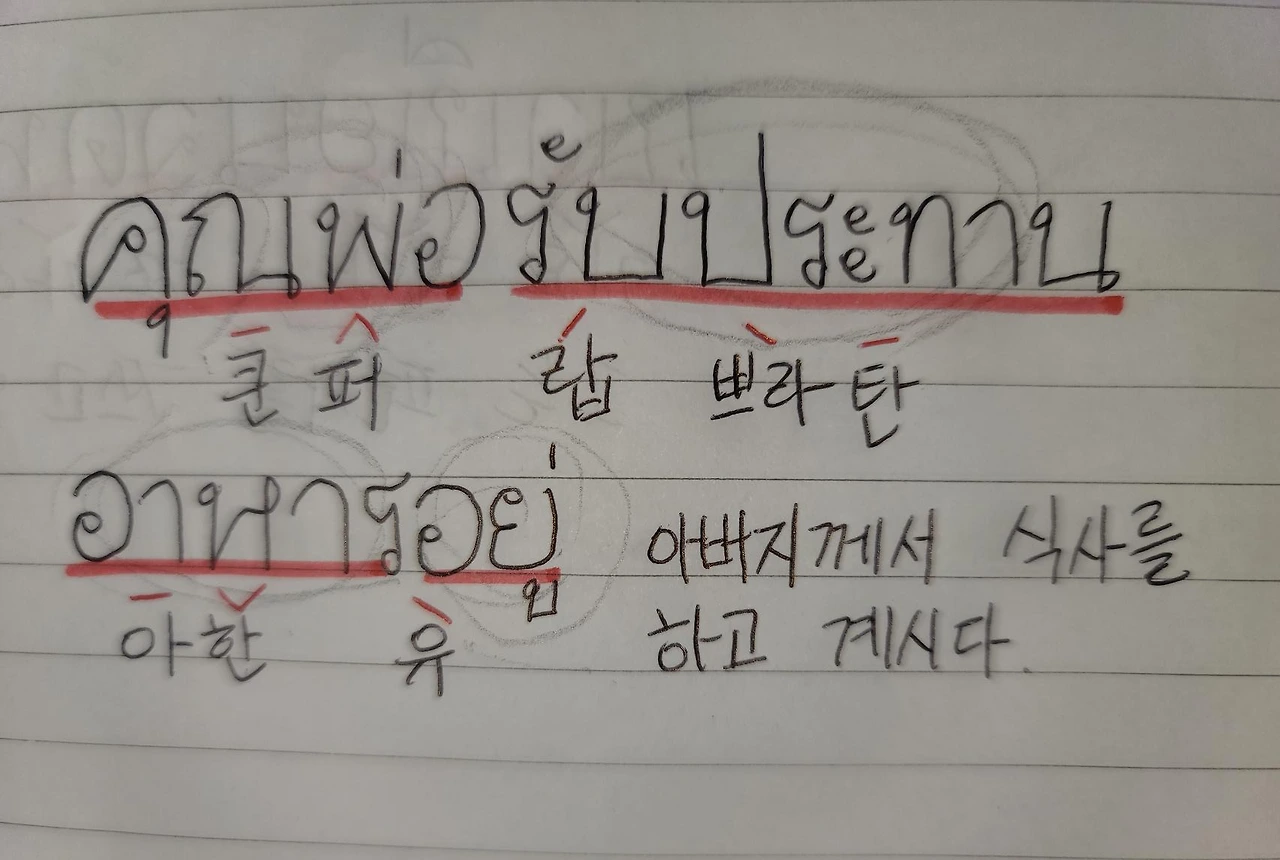 คุณพ่อรับประทาน
쿤 퍼 랍 쁘라 탄
อาหารอยู่ 아빠지께서 식사를
아 한 유 하고 계시다.